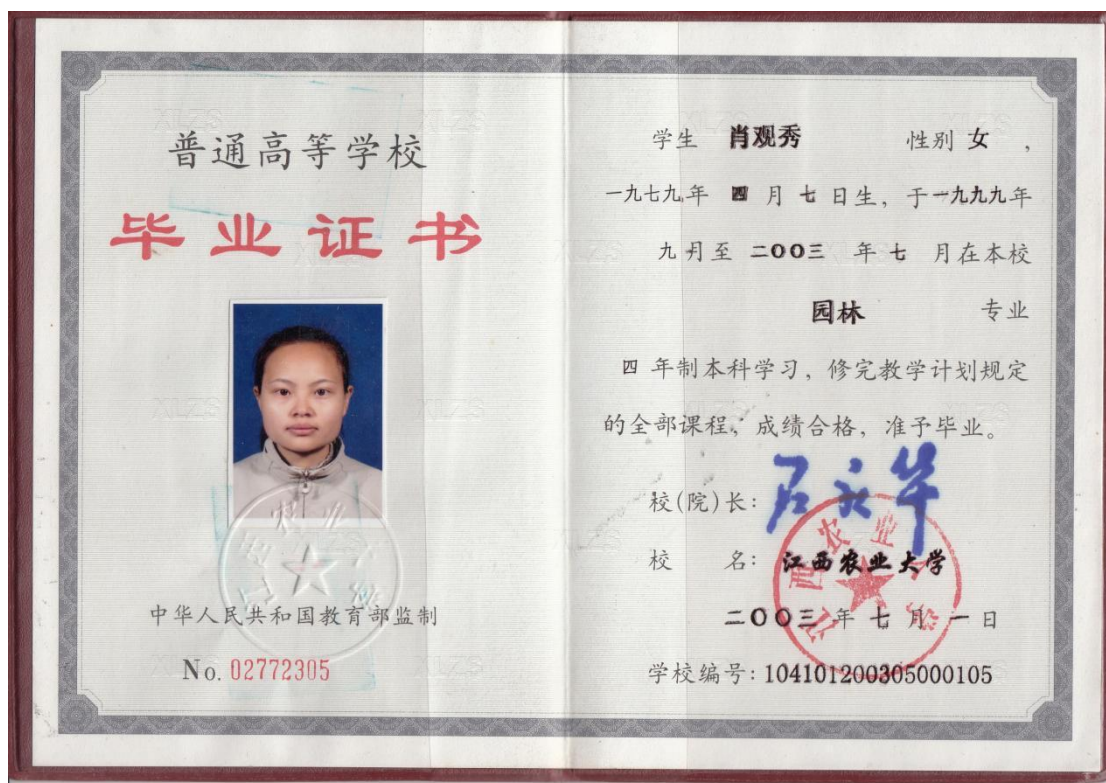 普通高等学校
毕业证书
中华人民共和国教育部监制
No. 02772305
学生 肖观秀 性别 女 ，
一九七九年 四 月 七 日生，于一九九九年
九月至 二〇〇三 年 七 月在本校
园林 专业
四 年制本科学习，修完教学计划规定
的全部课程，成绩合格，准予毕业。
校(院)长：
校 名： 江西农业大学
二〇〇三 年 七 月 一 日
学校编号：104101200305000105
江西农业大学